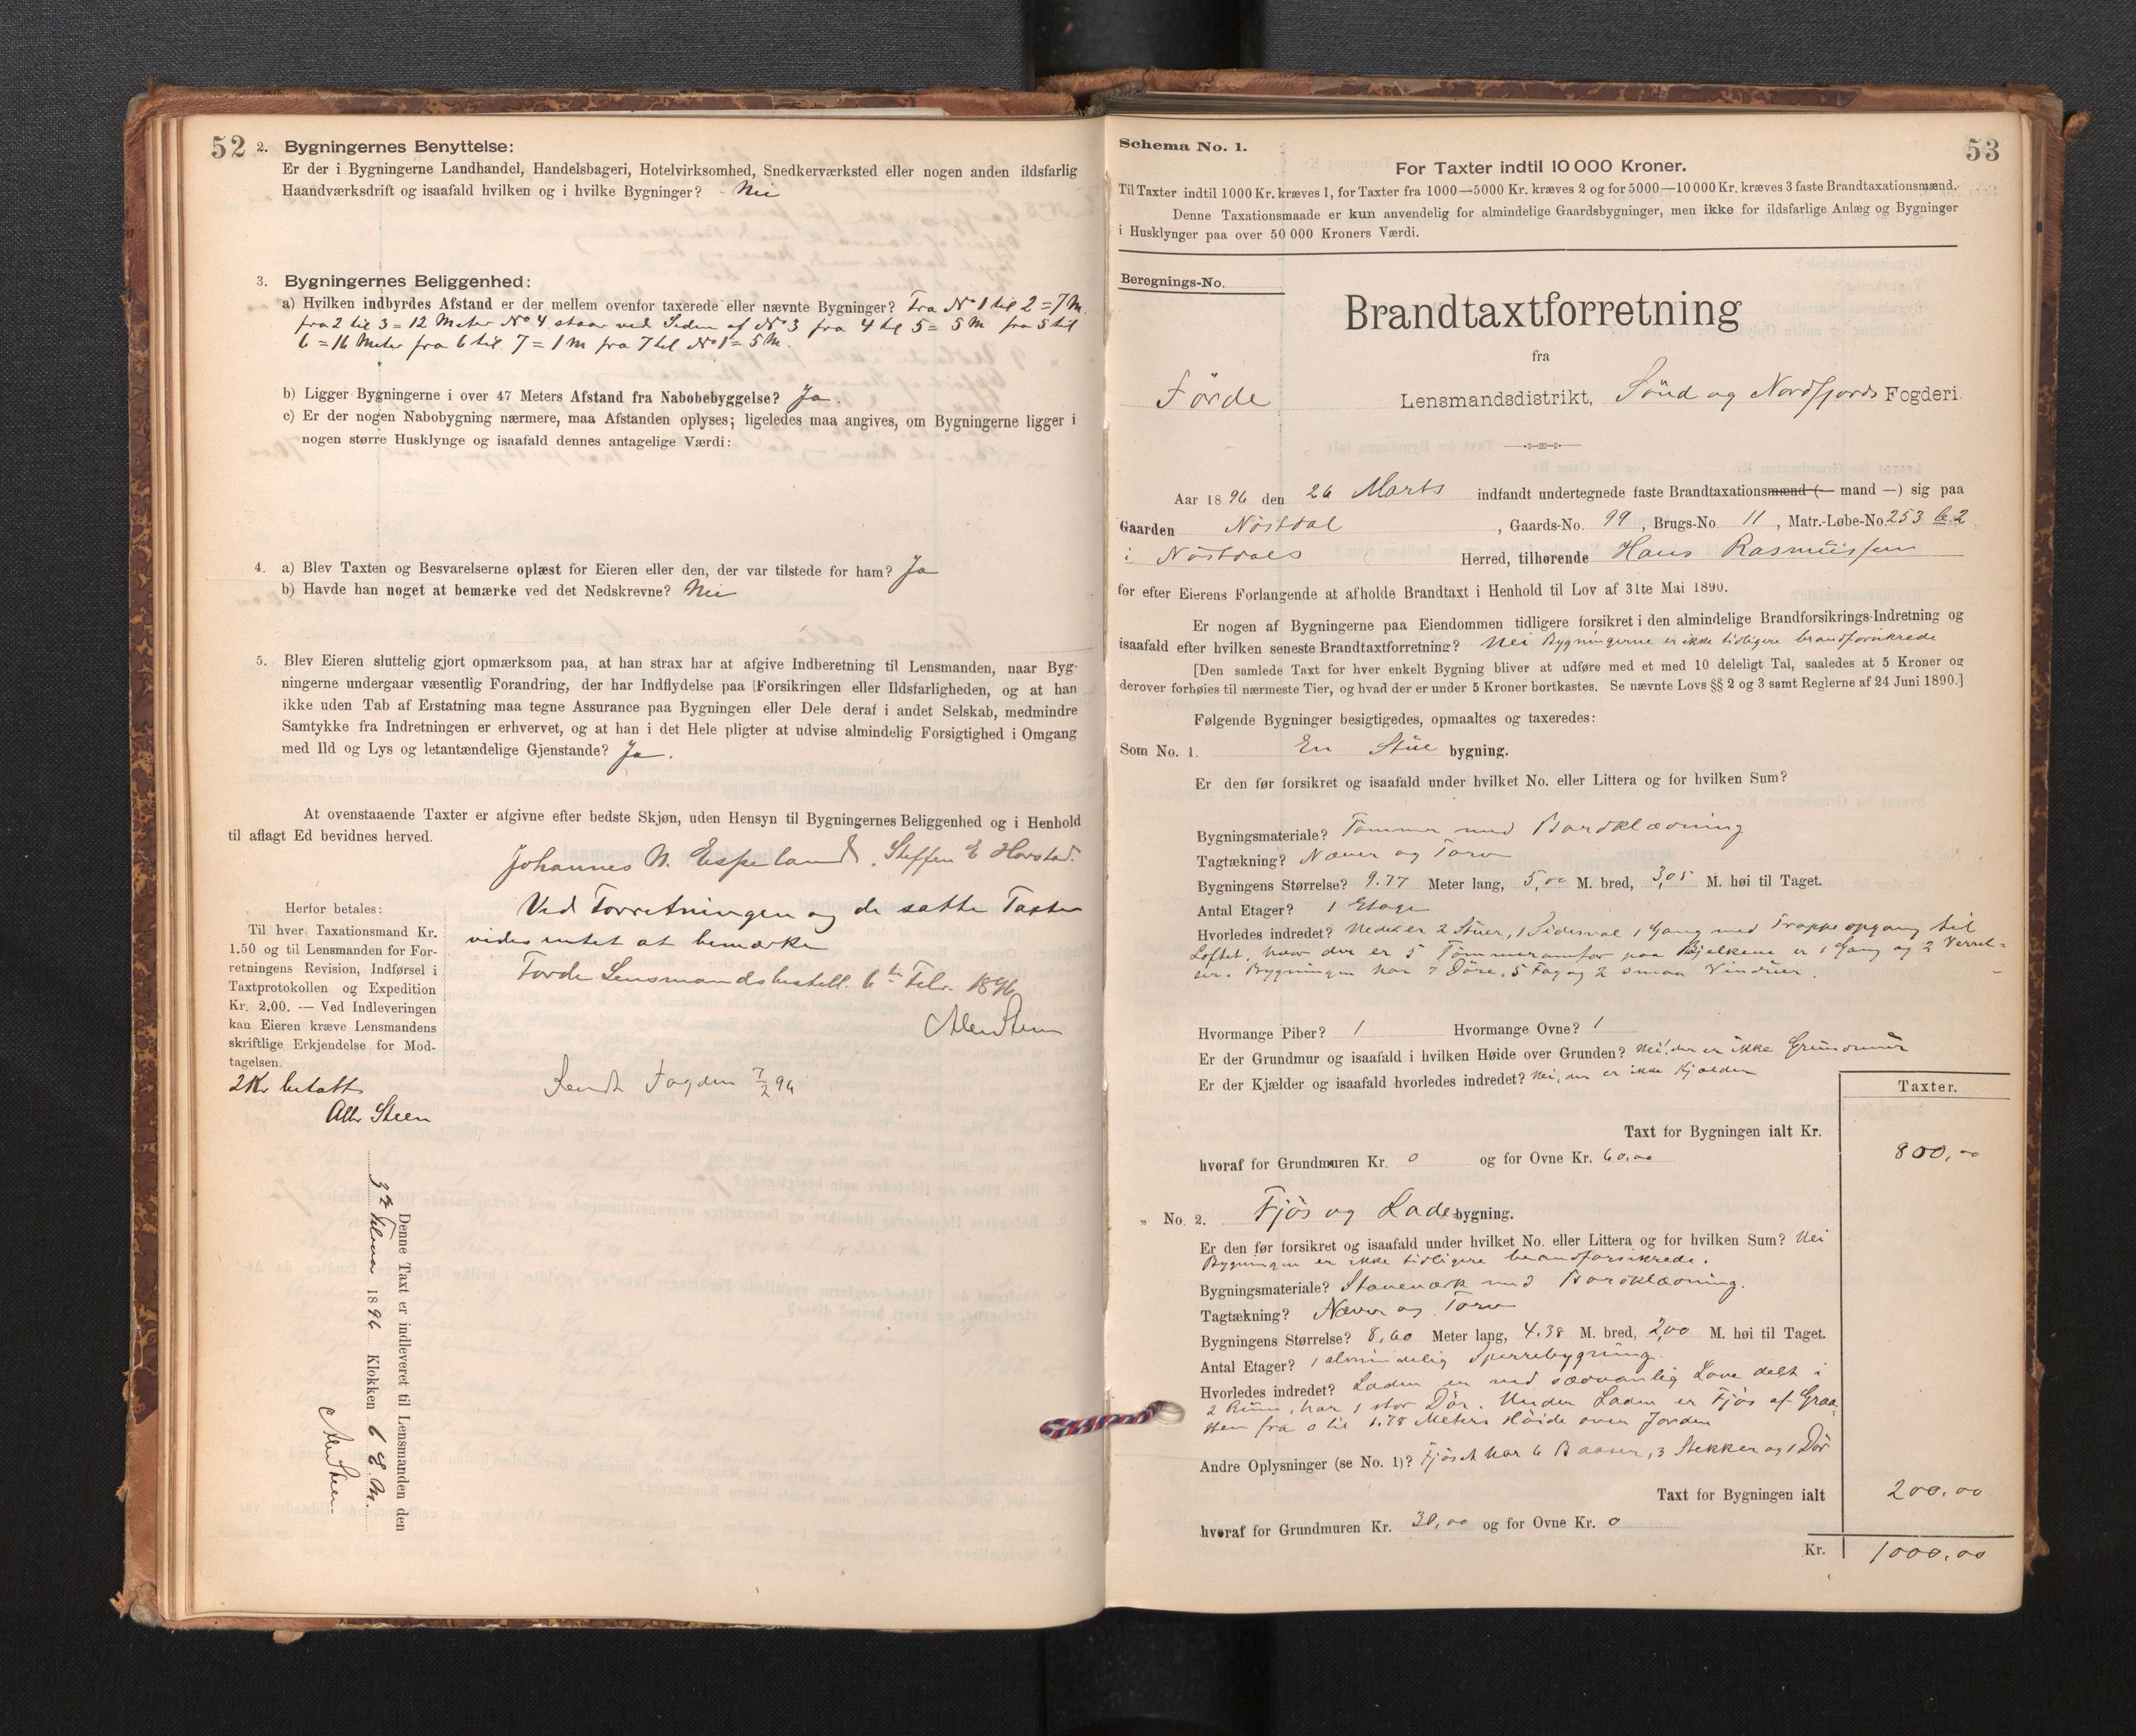 52
2. Bygningernes Benyttelse:
Er der i Bygningerne Landhandel, Handelsbageri, Hotelvirksomhed, Snedkerværksted eller nogen anden ildsfarlig
Haandværksdrift og isaafald hvilken og i hvilke Bygninger? Nei
3. Bygningernes Beliggenhed:
a) Hvilken indbyrdes Afstand er der mellem ovenfor taxerede eller nævnte Bygninger? Fra No 1 til 2 = 7 M.
fra 2 til 3 = 12 Meter No 4 staar ved Siden af No 3 fra 4 til 5 = 5 M fra 5 til
6 = 16 Meter fra 6 til 7 = 1 M fra 7 til No 1 = 5 M.
b) Ligger Bygningerne i over 47 Meters Afstand fra Nabobebyggelse? Ja
c) Er der nogen Nabobygning nærmere, maa Afstanden oplyses; ligeledes maa angives, om Bygningerne ligger i
nogen større Husklynge og isaafald dennes antagelige Værdi:
4. a) Blev Taxten og Besvarelserne oplæst for Eieren eller den, der var tilstede for ham? Ja
b) Havde han noget at bemærke ved det Nedskrevne? Nei
5. Blev Eieren sluttelig gjort opmærksom paa, at han strax har at afgive Indberetning til Lensmanden, naar Byg-
ningerne undergaar væsentlig Forandring, der har Indflydelse paa Forsikringen eller Ildsfarligheden, og at han
ikke uden Tab af Erstatning maa tegne Assurance paa Bygningen eller Dele deraf i andet Selskab, medmindre
Samtykke fra Indretningen er erhvervet, og at han i det Hele pligter at udvise almindelig Forsigtighed i Omgang
med Ild og Lys og letantændelige Gjenstande? Ja.
At ovenstaaende Taxter er afgivne efter bedste Skjøn, uden Hensyn til Bygningernes Beliggenhed og i Henhold
til aflagt Ed bevidnes herved.
Johannes N. Espeland. Steffen E Horstad.
Ved Forretningen og de satte Taxter
vides intet at bemærke
Førde Lensmandsbestell. 6te Febr. 1896
Sendt Fogden 7/2 96
Herfor betales:
Til hver Taxationsmand Kr.
1.50 og til Lensmanden for For-
retningens Revision, Indførsel i
Taxtprotokollen og Expedition
Kr. 2.00. — Ved Indleveringen
kan Eieren kræve Lensmandens
skriftlige Erkjendelse for Mod-
tagelsen.
2 Kr betalt
Alb Steen
Denne Taxt er indleveret til Lensmanden den
3die Februar 1896 Klokken 6 E M.
53
Schema No. 1.
For Taxter indtil 10 000 Kroner.
Til Taxter indtil 1000 Kr. kræves 1, for Taxter fra 1000—5000 Kr. kræves 2 og for 5000—10 000 Kr. kræves 3 faste Brandtaxationsmænd.
Denne Taxationsmaade er kun anvendelig for almindelige Gaardsbygninger, men ikke for ildsfarlige Anlæg og Bygninger
i Husklynger paa over 50 000 Kroners Værdi.
Beregnings-No.
Brandtaxtforretning
fra
Förde Lensmandsdistrikt, Sönd og Nordfjords Fogderi.
Aar 1896 den 26 Marts indfandt undertegnede faste Brandtaxationsmænd (— mand —) sig paa
Gaarden Nöstdal, Gaards-No. 99, Brugs-No. 11, Matr.-Løbe-No 253 b.2
i Nöstdals Herred, tilhørende Hans Rasmüssen
for efter Eierens Forlangende at afholde Brandtaxt i Henhold til Lov af 31te Mai 1890.
Er nogen af Bygningerne paa Eiendommen tidligere forsikret i den almindelige Brandforsikrings-Indretning og
isaafald efter hvilken seneste Brandtaxtforretning? Nei Bygningerne er ikke tidligere brandforsikrede
[Den samlede Taxt for hver enkelt Bygning bliver at udføre med et med 10 deleligt Tal, saaledes at 5 Kroner og
derover forhøies til nærmeste Tier, og hvad der er under 5 Kroner bortkastes. Se nævnte Lovs §§ 2 og 3 samt Reglerne af 24 Juni 1890.]
Følgende Bygninger besigtigedes, opmaaltes og taxeredes:
Som No. 1. En Stüe bygning.
Er den før forsikret og isaafald under hvilket No. eller Littera og for hvilken Sum?
Bygningsmateriale? Tömmer med Bordklædning
Tagtækning? Næver og Torv
Bygningens Størrelse? 9.77 Meter lang, 5,00 M. bred, 3,05 M. høi til Taget.
Antal Etager? 1 Etage
Hvorledes indredet? Neder er 2 Stüer, 1 Sideval 1 Gang med Trappeopgang til
Loftet, hvor der er 5 Tömmeromfar paa Bjelkene er 1 Gang og 2 Værel-
ser. Bygningen har 7 Döre, 5 Fag og 2 smaa Vindüer.
Hvormange Piber? 1 Hvormange Ovne? 1
Er der Grundmur og isaafald i hvilken Høide over Grunden? Nei, der er ikke Gründmür
Er der Kjælder og isaafald hvorledes indredet? Nei, der er ikke Kjælder
Taxter.
Taxt for Bygningen ialt Kr. 800,00
hvoraf for Grundmuren Kr. 0 og for Ovne Kr. 60,00
„ No. 2. Fjös og Lade bygning.
Er den før forsikret og isaafald under hvilket No. eller Littera og for hvilken Sum? Nei
Bygningen er ikke tidligere brandforsikrede.
Bygningsmateriale? Staveværk med Bordklædning.
Tagtækning? Næver og Torv
Bygningens Størrelse? 8,60 Meter lang, 4.38 M. bred, 2,00 M. høi til Taget.
Antal Etager? 1 almindelig Sperrebygning.
Hvorledes indredet? Laden er med sædvanlig Lave delt i
2 Rüm, har 1 stor Dör. Under Laden er Fjös af Graa-
sten fra 0 til 1.78 Meters Höide over Jorden
Andre Oplysninger (se No. 1)? Fjöset har 6 Baaser, 3 Stekker og 1 Dör
Taxt for Bygningen ialt 200,00
hvoraf for Grundmuren Kr. 30,00 og for Ovne Kr. 0
Kr. 1000,00